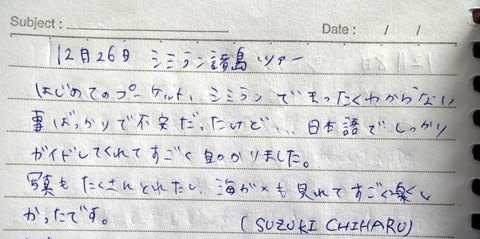 Subject : Date : / /
12月26日 シミラン諸島ツアー
はじめてのプーケット、シミランでまったくわからない
事ばっかりで不安だったけど... 日本語でしっかり
ガイドしてくれてすごく助かりました。
写真もたくさんとれたし、海がめも見れてすごく楽し
かったです。 (SUZUKI CHIHARU)